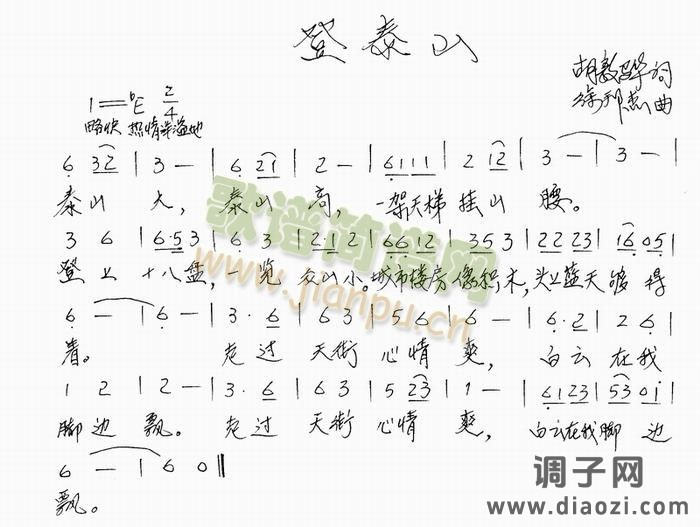 登泰山
胡敦骅词
1=♭E 2/4
徐邦杰曲
略快 热情洋溢地
6 32 | 3 — | 6 21 | 2 — | 6111 | 2 12 | 3 — | 3 — |
泰山 大, 泰山 高, 一架天梯 挂山 腰。
3 6 | 6·53 | 6 3 | 2·12 | 6612 | 353 | 2223 | 1605 |
登上 十八盘, 一览 众山小。城市楼房像积木,头上蓝天够得
6 — | 6 — | 3·6 | 63 | 56 | 6 — | 6·2 | 26 |
着。 走过 天街 心情 爽, 白云 在我
1 2 | 2 — | 3·6 | 63 | 5 23 | 1 — | 6123 | 5301 |
脚边 飘。 走过 天街 心情 爽, 白云在我脚 边
6 — | 6 0 ‖
飘。
歌谱简谱网
www.jianpu.cn
调子网
www.diaozi.com